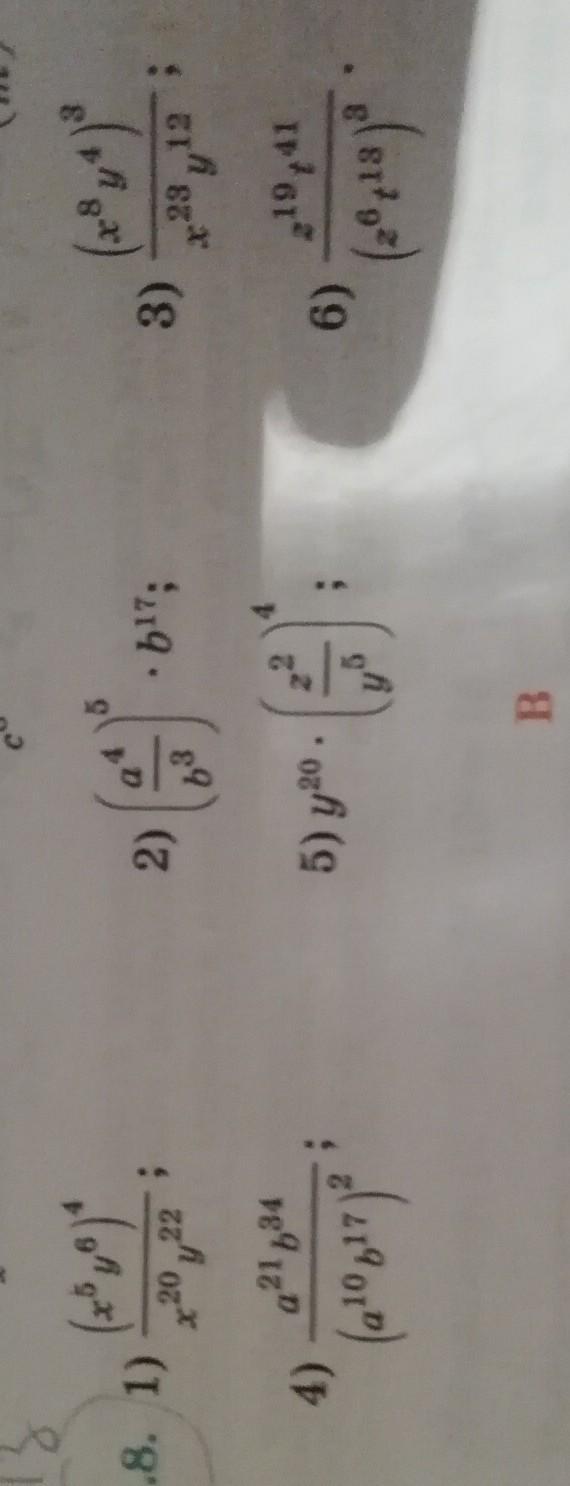 .8. 1) (x⁵y⁶)⁴ / x²⁰y²²; 2) (a⁴ / b³)⁵ · b¹⁷; 3) (x⁸y⁴)³ / x²³y¹²;
4) a²¹b³⁴ / (a¹⁰b¹⁷)²; 5) y²⁰ · (z² / y⁵)⁴; 6) z¹⁹t⁴¹ / (z⁶t¹³)³.
B